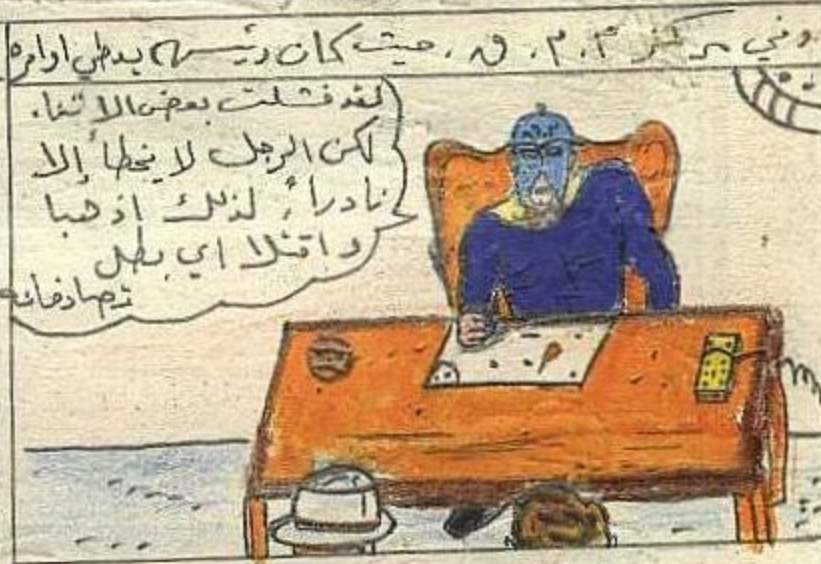 وفي مركز م.م.ق. حيث كان رئيسها يعطي اوامره
لقد فشلت بعض الاشياء.
لكن الرجل لا يخطأ إلا
نادراً، لذلك اذهبا
واقتلا اي بطل
تصادفانه